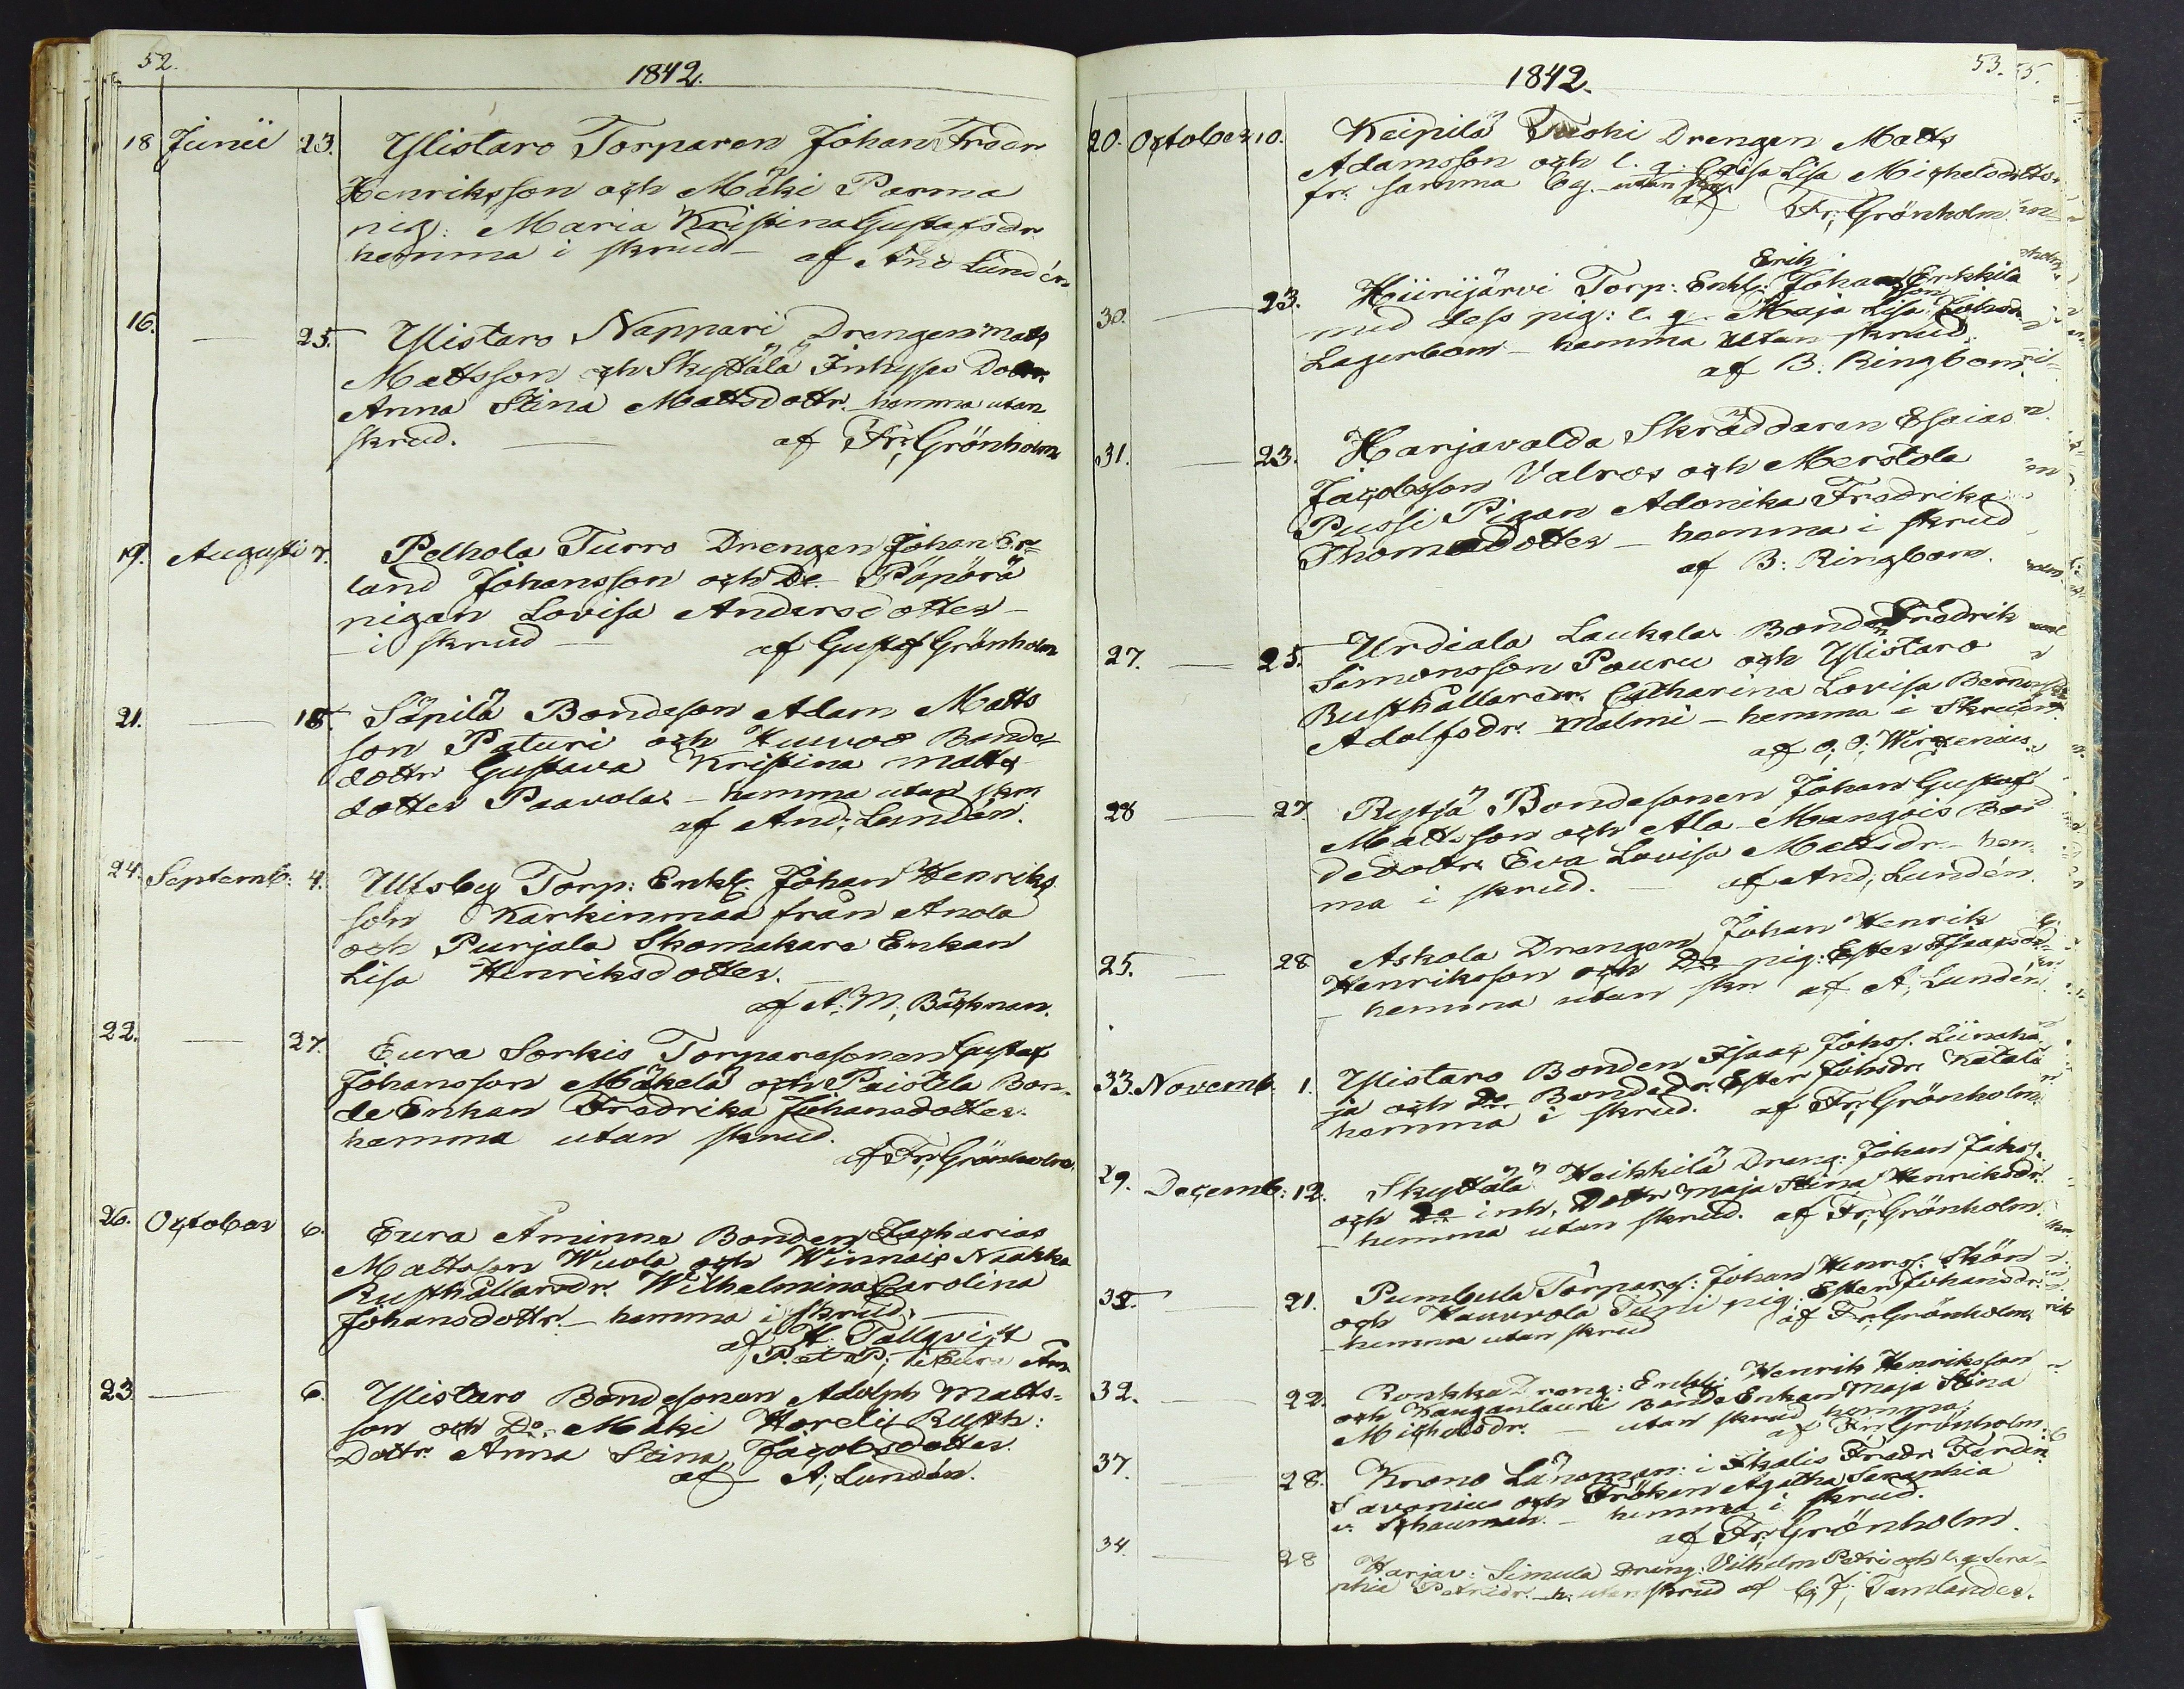 52.
1842.
18 Junii 23. Ylistaro Torparen Johan Fredr
Henriksson och Mäki Parma
pig: Maria Kristina Gustafsdr
hemma i skrud – af And Lundén
16. — 25. Ylistaro Nappari Drengen Matts
Mattsson och Skyttälä Inhyses Dottr.
Anna Stina Mattsdottr. hemma utan
skrud. — af Fr; Grönholm
19. Augusti 7. Pelhola Turro Drengen Johan Er-
land Johansson och Do Pöpörä
pigan Lovisa Andersdotter –
– i skrud – af Gustaf Grönholm
21. — 15. Söpilä Bondeson Adam Matts
son Paturi och Kuuvoo Bonde-
dottr Gustava Kristina Matts
dotter Paavola – hemma utan skru
af And; Lundén.
24. Septemb: 4. Ulfsby Torp: Enkl. Johan Henriks
son Karkinmaa från Anola
och Purjala Skomakare Enkan
Lisa Henriksdotter. –
af A; M; Bäckman.
22. — 27. Eura Sorkis Torparesonen Gustaf
Johansson Mäkelä och Paistila Bon-
de Enkan Fredrika Johansdotter.
hemma utan skrud.
af Fr; Grönholm.
26. October 6. Eura Aminne Bonden Zacharias
Mattsson Wuola och Winnais Naukka
Rusthållaredr. Wilhelmina Carolina
Johansdottr. – hemma i skrud.
af H. Tallqvist
P. et P; i Eura
23 — 6. Ylistaro Bondesonen Adolph Matts-
son och Do. Mäki Hereli Rusth:
Dottr. Anna Stina Jacobsdotter.
af A; Lundén.
53.
1842.
20. October 10. Keipilä Tuohi Drengen Matts
Adamsson och l. q. Caisa Lisa Michelsdotter
fr. samma by – utan skr.
af Fr; Grönholm
Erik
30. — 23. Hiirijärvi Torp: Enkl: Johansson Erkkilä
med Less pig: l. q. Maja Lisa Johsdr.
Lagerbom – hemma utan skrud.
af B: Ringbom.
31. — 23. Harjavalda Skräddaren Esaias
Jacobsson Valros och Merstola
Pussi Pigan Adonika Fredrika
Thomasdotter – hemma i skrud
af B: Ringbom.
27. — 25. Urdiala Laukela Bonden Fredrik
Simonsson Pouru och Ylistaro
Rusthållaredr. Catharina Lovisa
Adolfsdr. Malmi – hemma i skrud.
af O; O; Wirzenius.
28 — 27. Rytsä Bondesonen Johan Gustaf
Mattsson och Ala-Mangois Bon
dedottr. Eva Lovisa Mattsdr. – hem-
ma i skrud. — af And; Lundén
25. — 28 Askola Drengen Johan Henrik
Henriksson och Do pig: Ester Isaacsdr
– hemma utan skr af A; Lundén.
33. Novemb. 1. Ylistaro Bonden Isaac Johss. Liinaha
ja och Do Bondedr. Ester Johsdr Katala
hemma i skrud. af Fr; Grönholm
29. Decemb: 12. Skyttälä Heikkilä Dreng: Johan Johss.
och Do inh. Dottr Maja Stina Henriksdr.
– hemma utan skrud. af Fr; Grönholm
35. — 21. Pumbula Torpares: Johan Henrss. Skön
och Kauvvola Tupi pig: Ester Johansdr.
– hemma utan skrud af Fr; Grönholm
32. — 22. Ronkka Dreng: Enkl: Henrik Henriksson
och Kauganlauri Bonde Enkan Maja Stina
Michelsdr. – utan skrud hemma.
af Fr; Grönholm.
37. — 28. Krono Länsman: i Ikalis Fredr. Ferdin.
Savonius och Fröken Agatha Seraphia
v. Schauman. – hemma i skrud.
af Fr; Grönholm.
34. — 28 Harjav: Simula Dreng: Vilhelm Petri och l. q. Sera-
phia Petridr. – h. utan skrud af C; J; Tamlander.